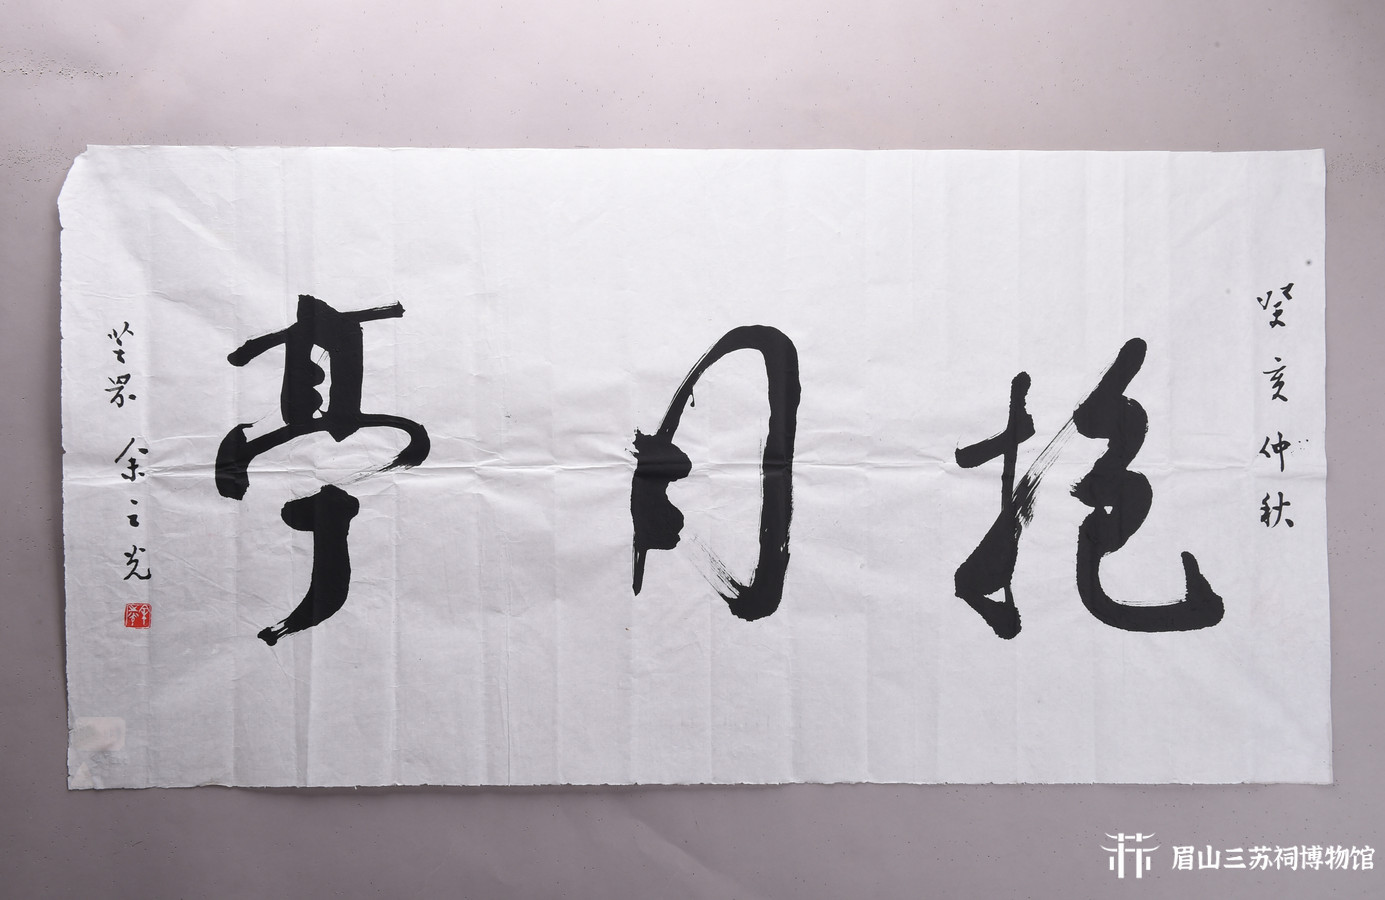 癸亥仲秋
抱月亭
余之光
眉山三苏祠博物馆